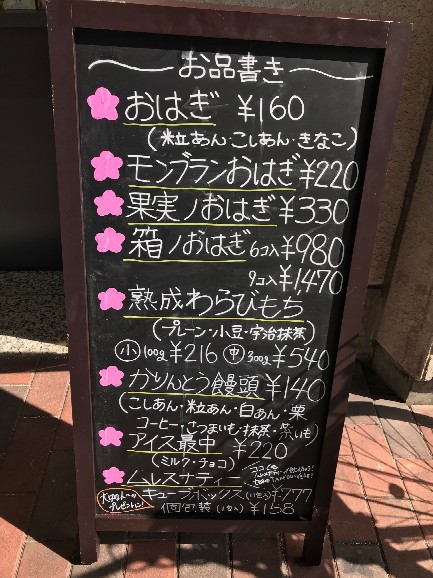 お品書き
おはぎ ¥160
(粒あん・こしあん・きなこ)
モンブランおはぎ ¥220
果実ノおはぎ ¥330
箱ノおはぎ 6コ入 ¥980
9コ入 ¥1470
熟成わらびもち
(プレーン・小豆・宇治抹茶)
小 100g ¥216 中 300g ¥540
かりんとう饅頭 ¥140
(こしあん・粒あん・白あん・栗
コーヒー・さつまいも・抹茶・紫いも)
アイス最中 ¥220
(ミルク・チョコ)
ムレスナティー
キューブボックス ¥777
個包装 ¥158